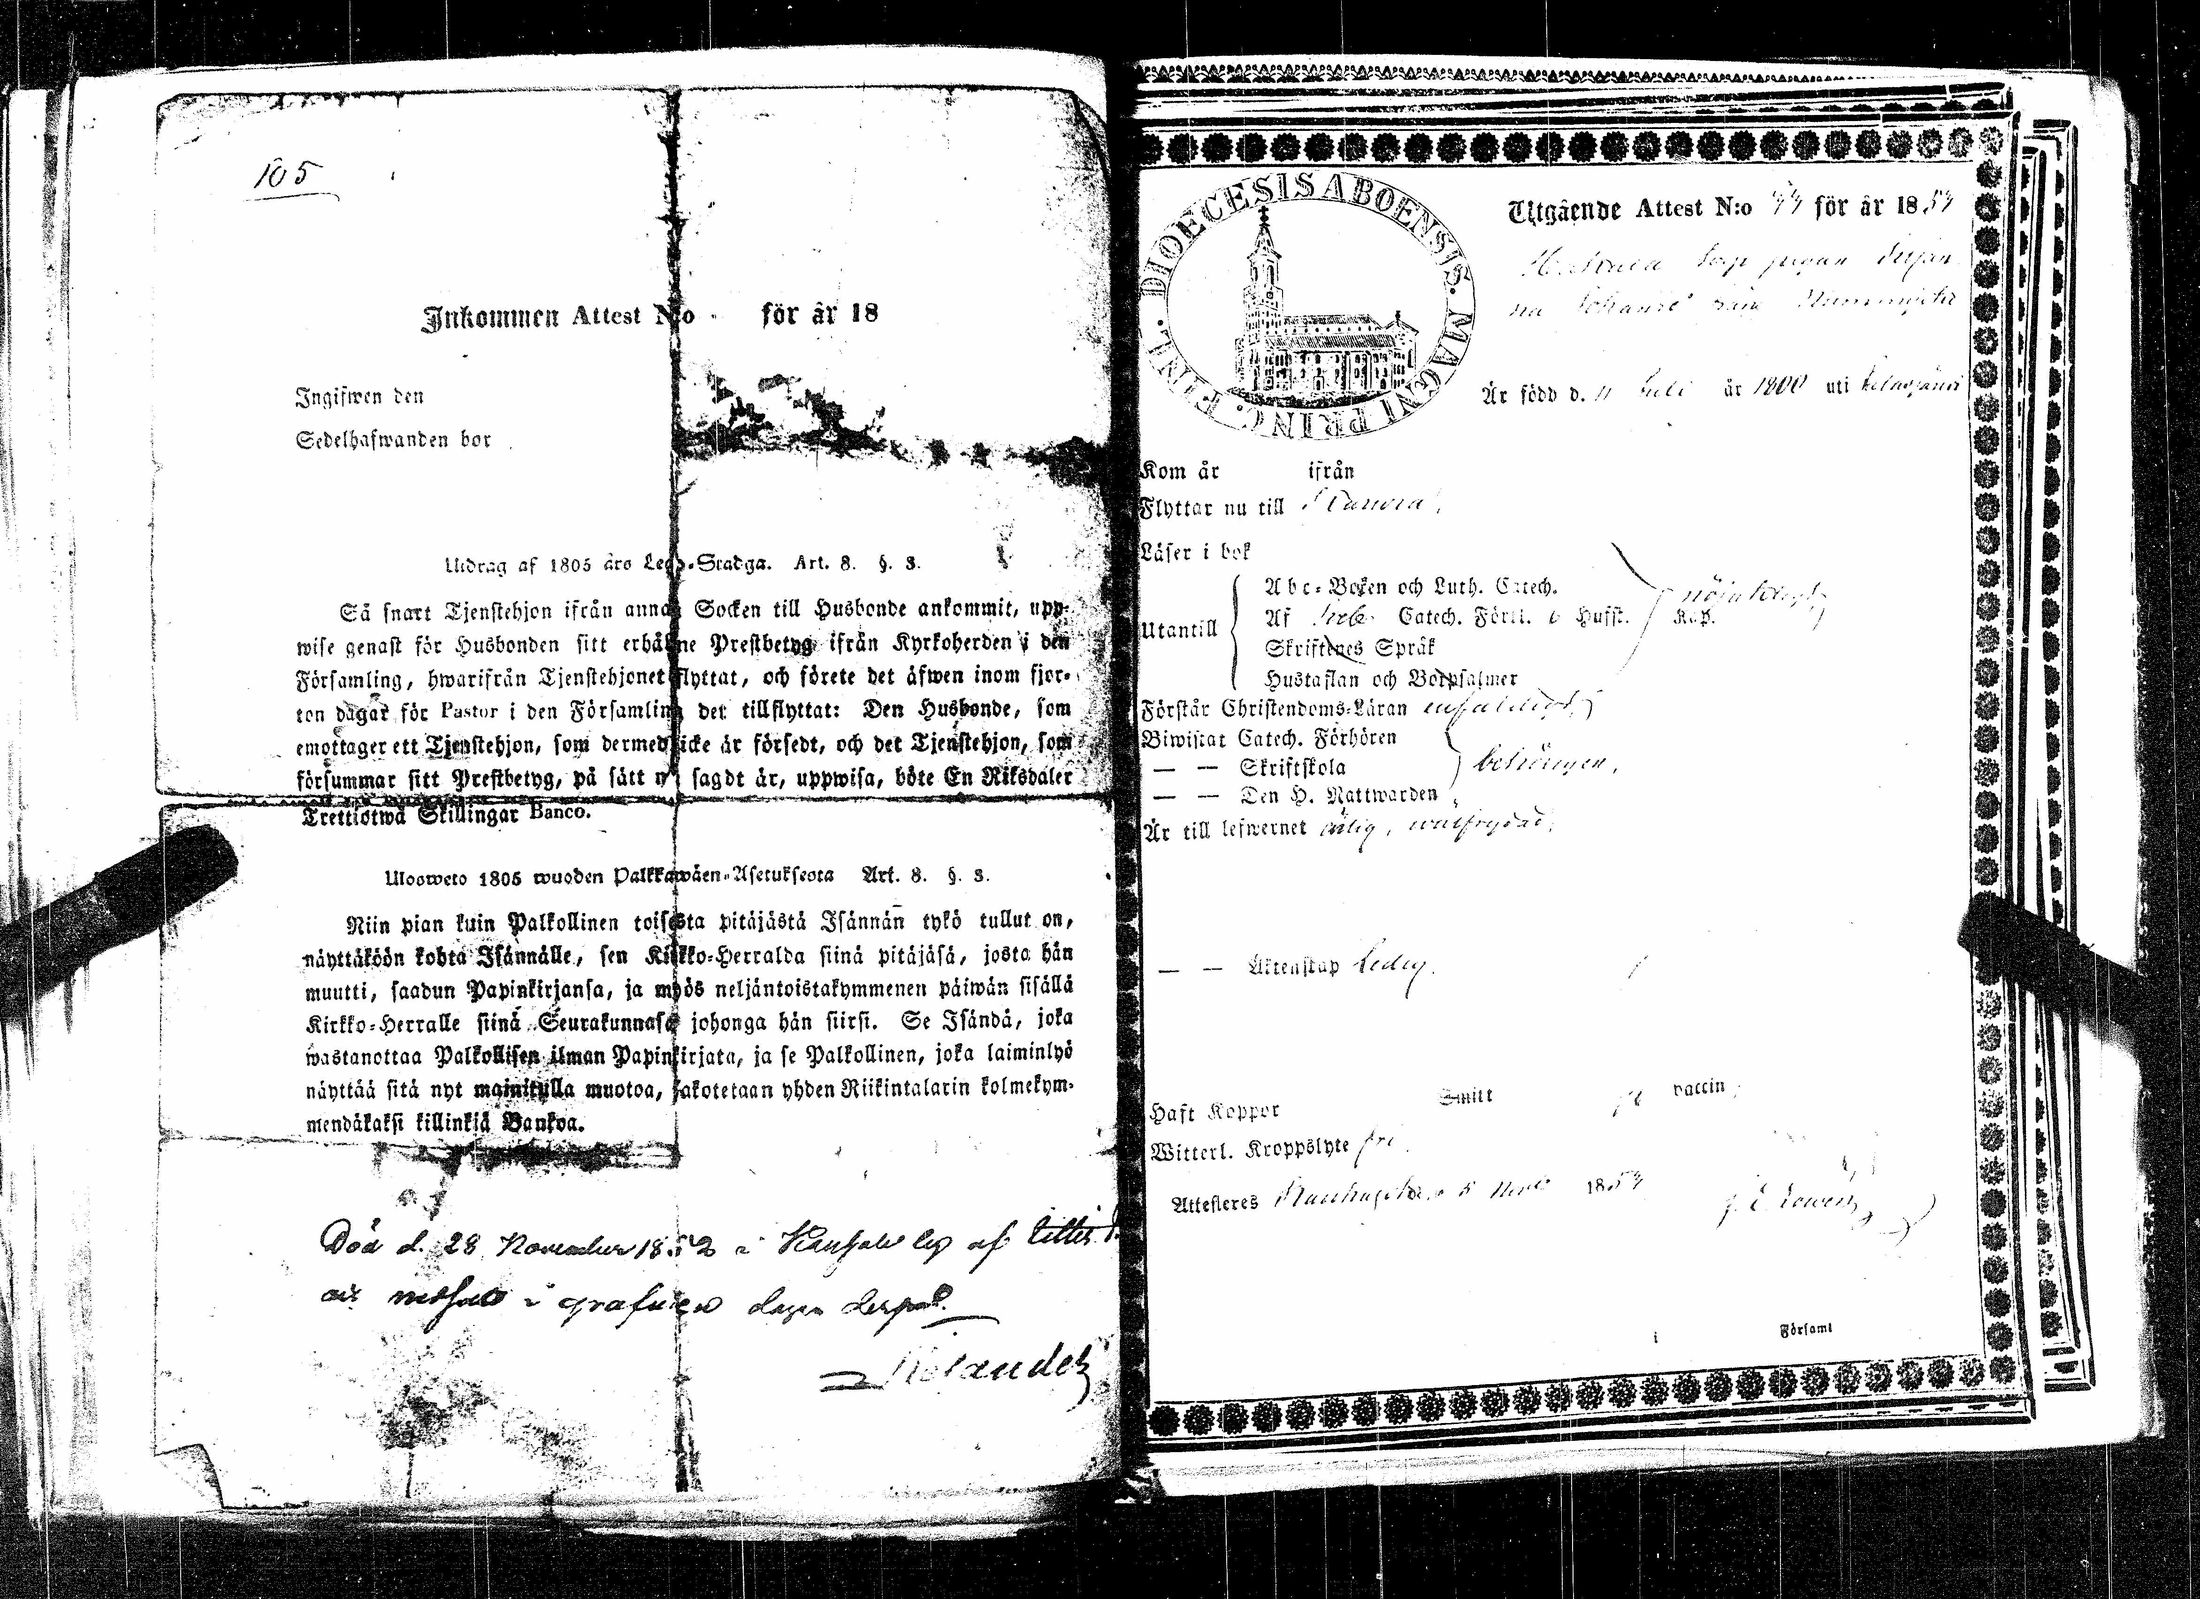 105
Inkommen Attest N:o för år 18
Ingifwen den
Sedelhafwanden bor
Utdrag af 1805 års Lego-Stadga. Art. 8. §. 3.
Så snart Tjenstehjon ifrån annan Socken till Husbonde ankommit, upp-
wise genast för Husbonden sitt erhållne Prestbetyg ifrån Kyrkoherden i den
Församling, hwarifrån Tjenstehjonet flyttat, och förete det äfwen inom fjor-
ton dagar för Pastor i den Församling det tillflyttat: Den Husbonde, som
emottager ett Tjenstehjon, som dermed icke är försedt, och det Tjenstehjon, som
försummar sitt Prestbetyg, på sätt nu sagdt är, uppwisa, böte En Riksdaler
Trettiotwå Skillingar Banco.
Ulosweto 1805 wuoden Palkkawäen-Asetuksesta Art. 8. §. 3.
Niin pian kuin Palkollinen toisesta pitäjästä Isännän tykö tullut on,
näyttäköön kohta Isännälle, sen Kirkko-Herralda siinä pitäjäsä, josta hän
muutti, saadun Papinkirjansa, ja myös neljäntoistakymmenen päiwän sisällä
Kirkko-Herralle siinä Seurakunnasa johonga hän siirsi. Se Isändä, joka
wastanottaa Palkollisen ilman Papinkirjata, ja se Palkollinen, joka laiminlyö
näyttää sitä nyt mainitulla muotoa, sakotetaan yhden Riikintalarin kolmekym-
mendäkaksi killinkiä Bankoa.
Död d. 28 November 1852 i af
i dagen
DIOECESIS ABOENSIS. MAGNI PRINC. FINL.
Utgående Attest N:o för år 18 54
Johans från
Är född d. 11 Juli år 1800 uti
Kom år ifrån
Flyttar nu till
Läser i bok
Abc-Boken och Luth. Catech.
Utantill Af Catech. Förkl. o Hufst. Kap. nöjaktigt
Skriftenes Språk
Hustaflan och Botpsalmer
Förstår Christendoms-Läran enfaldigt
Biwistat Catech. Förhören
— — Skriftskola behörigen,
— — Den H. Nattwarden
Är till lefwernet ärlig, wälfrejdad,
— — Äktenskap Ledig.
Haft Koppor Smitt vaccin
Witterl. Kroppslyte fri
Attesteres d. 5 1854
i Församl